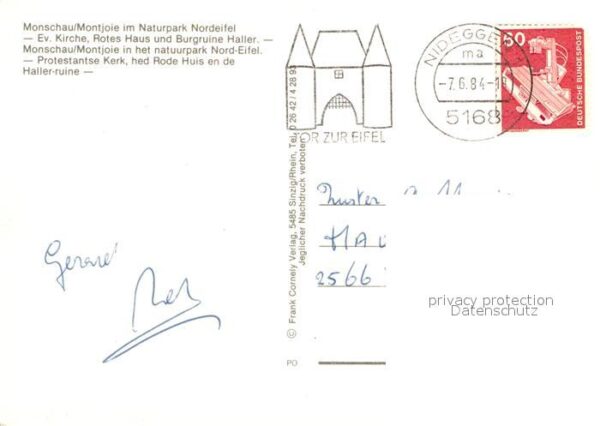 Monschau/Montjoie im Naturpark Nordeifel
— Ev. Kirche, Rotes Haus und Burgruine Haller. —
Monschau/Montjoie in het natuurpark Nord-Eifel.
— Protestantse Kerk, hed Rode Huis en de
Haller-ruine —
© Frank Cornely Verlag, 5485 Sinzig/Rhein, Tel. 0 26 42 / 4 28 9
Jeglicher Nachdruck verboten
PD
OR ZUR EIFEL
NIDEGGE
ma
-7.6.84-1
5168
60
DEUTSCHE BUNDESPOST
Zuster
HA
2566
privacy protection
Datenschutz
Gerard